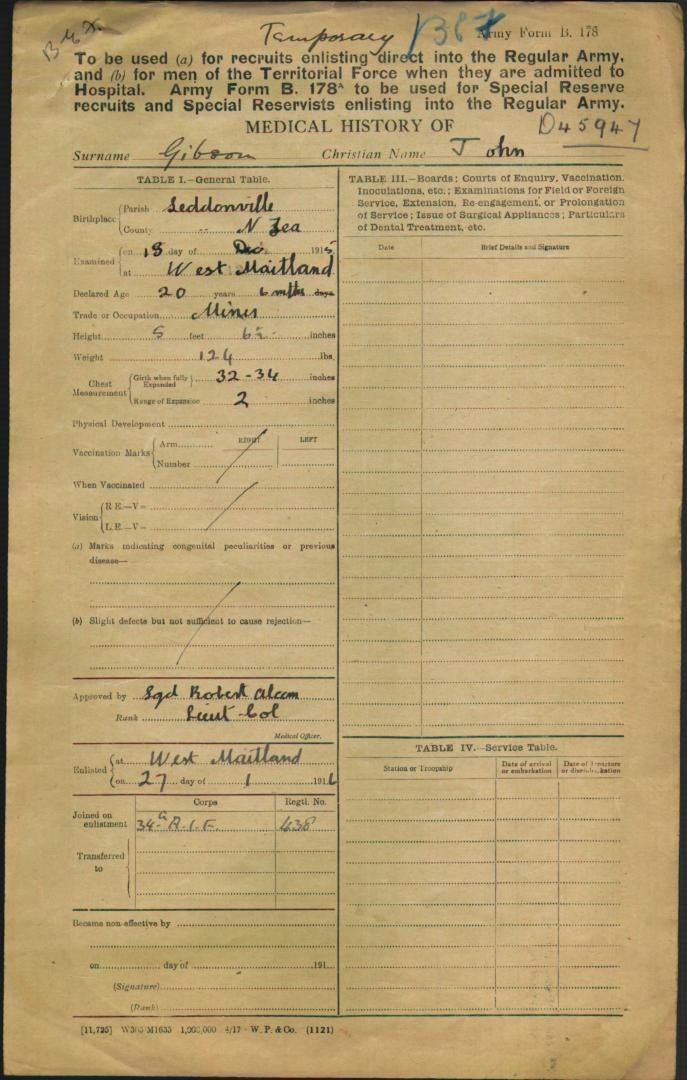 B.4.X.
Temporary
B87
Army Form B. 178
To be used (a) for recruits enlisting direct into the Regular Army,
and (b) for men of the Territorial Force when they are admitted to
Hospital. Army Form B. 178ᴬ to be used for Special Reserve
recruits and Special Reservists enlisting into the Regular Army.
MEDICAL HISTORY OF
D45947
Surname Gibson Christian Name John
TABLE I.—General Table.
Birthplace Parish Seddonville
County " N Zea
Examined on 18 day of Dec 1915
at West Maitland
Declared Age 20 years 6 mths days
Trade or Occupation Miner
Height 5 feet 6½ inches
Weight 124 lbs.
Chest Measurement Girth when fully Expanded 32-34 inches
Range of Expansion 2 inches
Physical Development
RIGHT LEFT
Vaccination Marks Arm
Number
When Vaccinated
Vision R.E.—V=
L.E.—V=
(a) Marks indicating congenital peculiarities or previous
disease—
(b) Slight defects but not sufficient to cause rejection—
Approved by Sgd Robert
Rank Lieut Col
Medical Officer.
Enlisted at West Maitland
on 27 day of 1 1916
Corps Regtl. No.
Joined on enlistment 34th A.I.F. 638
Transferred to
Became non-effective by
on day of 191
(Signature)
(Rank)
TABLE III.—Boards; Courts of Enquiry, Vaccination,
Inoculations, etc.; Examinations for Field or Foreign
Service, Extension, Re-engagement, or Prolongation
of Service; Issue of Surgical Appliances; Particulars
of Dental Treatment, etc.
Date Brief Details and Signature
TABLE IV.—Service Table.
Station or Troopship Date of arrival or embarkation Date of departure or disembarkation
[11,725] W303-M1633 1,000,000 4/17 - W. P. & Co. (1121)